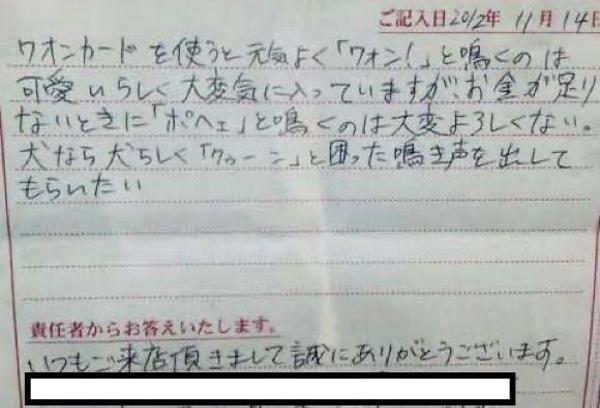 ご記入日2012年 11月 14日
ワオンカードを使うと元気よく「ワォン!」と鳴くのは
可愛いらしく大変気に入っていますが、お金が足り
ないときに「ポヘェ」と鳴くのは大変よろしくない。
犬なら犬らしく「クゥーン」と困った鳴き声を出して
もらいたい
責任者からお答えいたします。
いつもご来店頂きまして誠にありがとうございます。